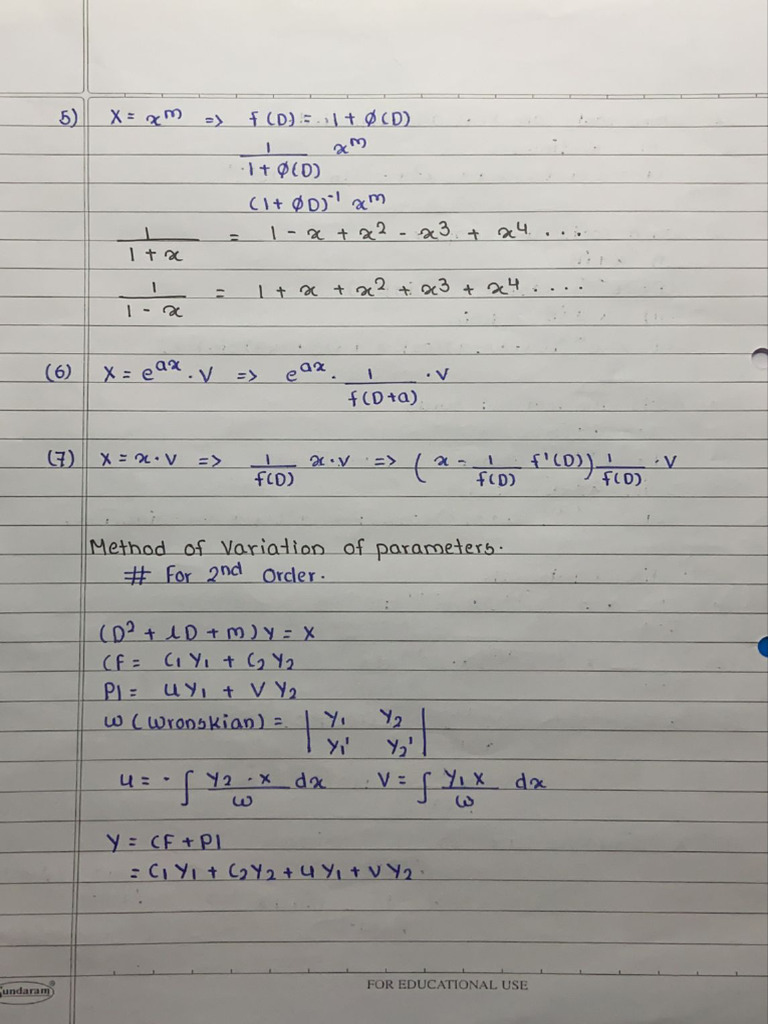 5) X = x^m => f(D) = 1 + φ(D)
1/(1 + φ(D)) x^m
(1 + φD)^-1 x^m
1/(1 + x) = 1 - x + x^2 - x^3 + x^4 ...
1/(1 - x) = 1 + x + x^2 + x^3 + x^4 ....
(6) X = e^ax · V => e^ax · 1/f(D+a) · V
(7) X = x · V => 1/f(D) x · V => (x - 1/f(D) f'(D)) 1/f(D) · V
Method of Variation of parameters.
# For 2nd Order.
(D^2 + lD + m) y = X
CF = C1 Y1 + C2 Y2
PI = U Y1 + V Y2
W (Wronskian) = | Y1 Y2 |
| Y1' Y2' |
U = - ∫ Y2 · X / W dx V = ∫ Y1 X / W dx
Y = CF + PI
= C1 Y1 + C2 Y2 + U Y1 + V Y2.
undaram FOR EDUCATIONAL USE